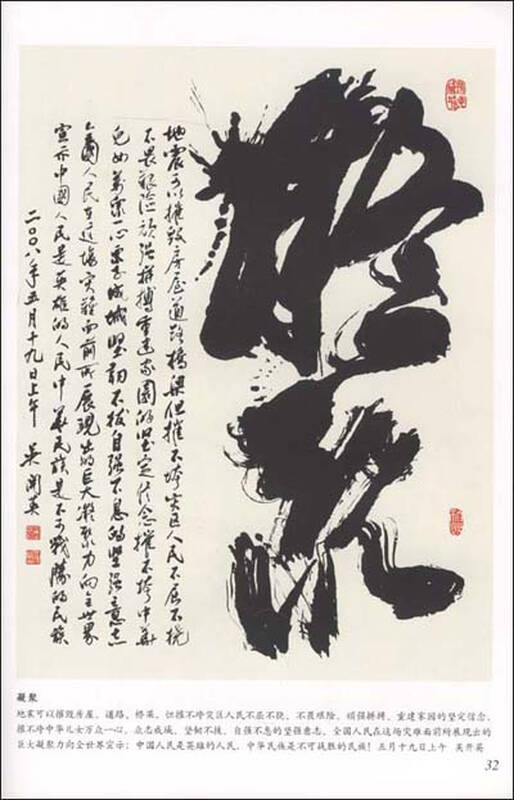 凝聚
地震可以摧毁房屋道路橋梁但摧不垮灾区人民不屈不挠
不畏艰险顽强拼搏重建家園的坚定信念摧不垮中華
儿女萬衆一心众志成城坚韧不拔自强不息的坚强意志
全國人民在这場灾難面前所展現出的巨大凝聚力向全世界
宣示中國人民是英雄的人民中華民族是不可戰勝的民族
二〇〇八年五月十九日上午 吴開英
凝聚
地震可以摧毁房屋、道路、桥梁，但摧不垮灾区人民不屈不挠、不畏艰险、顽强拼搏、重建家园的坚定信念，
摧不垮中华儿女万众一心、众志成城、坚韧不拔、自强不息的坚强意志，全国人民在这场灾难面前所展现出的
巨大凝聚力向全世界宣示：中国人民是英雄的人民，中华民族是不可战胜的民族！五月十九日上午 吴开英
32